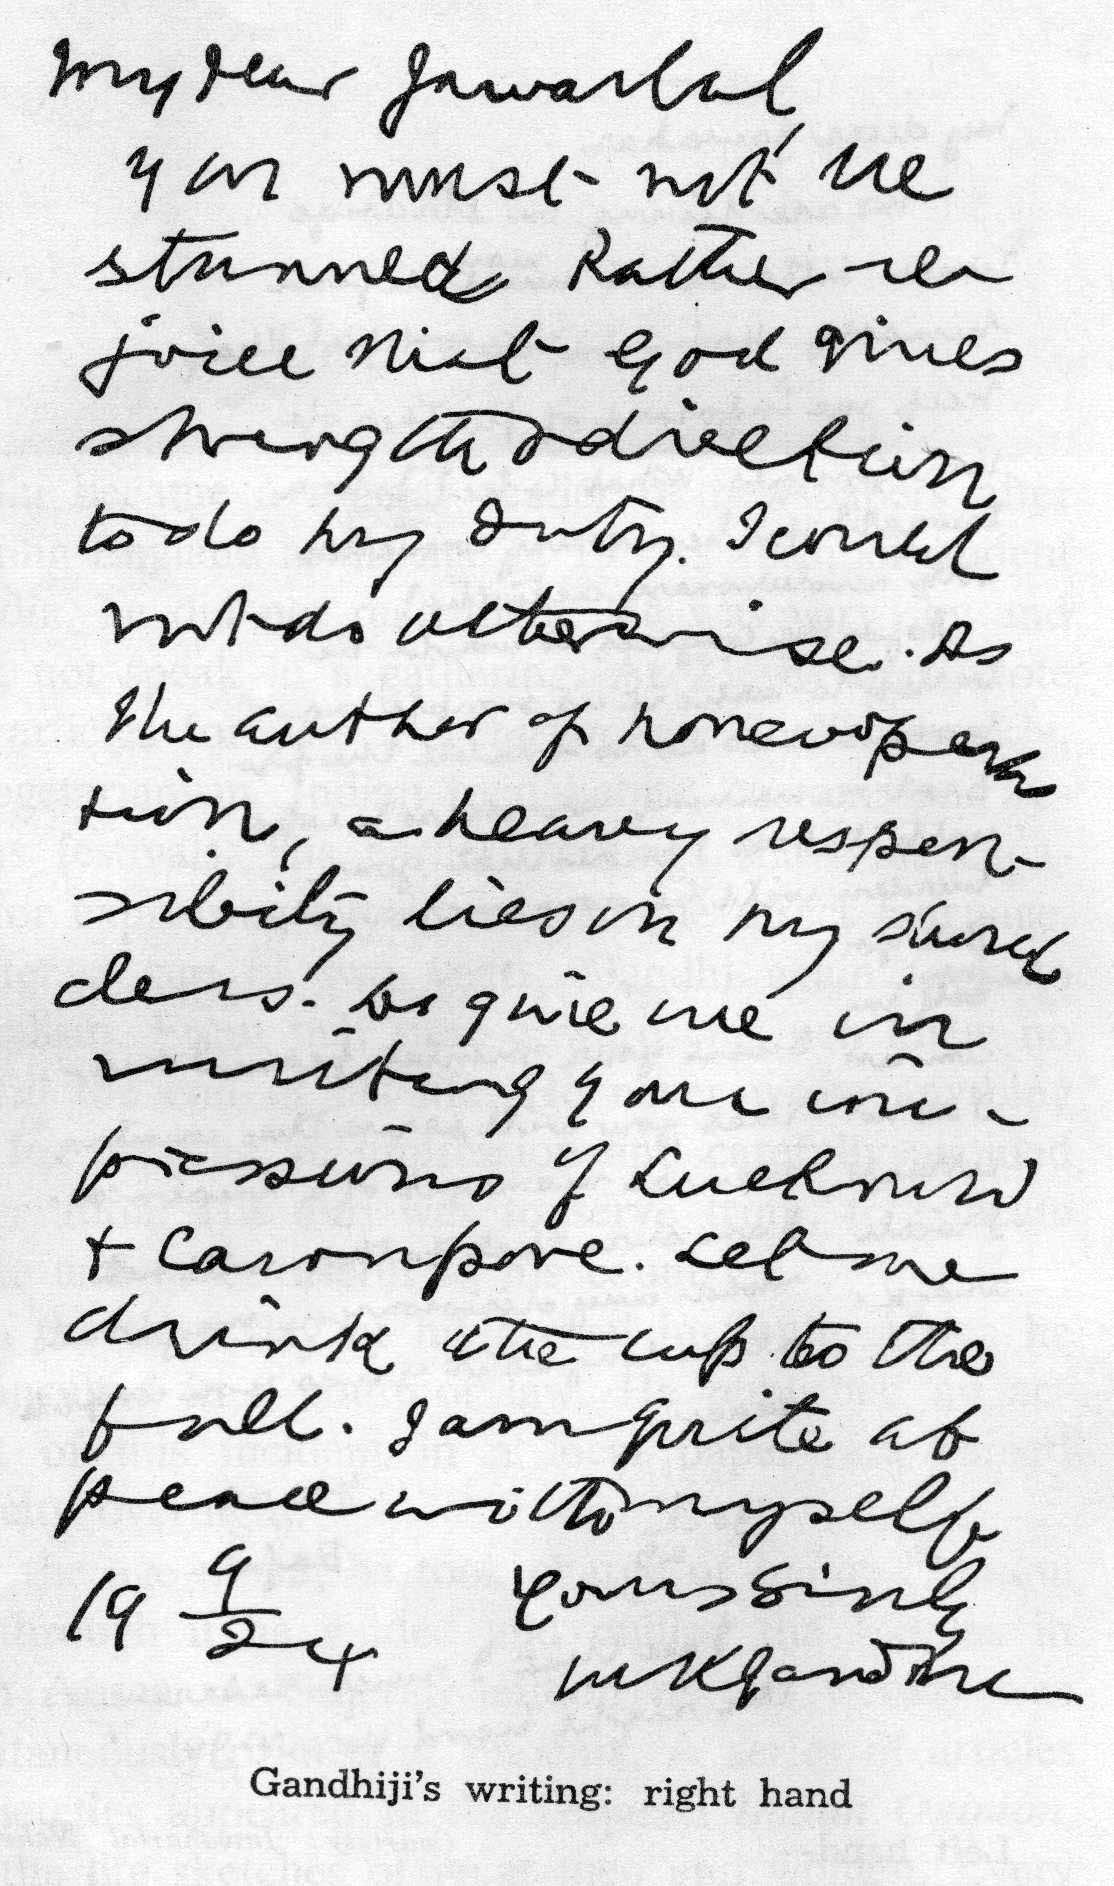 My dear Jawarlal,
You must not be
stunned. Rather re-
joice that God gives
strength & direction
to do my duty. I could
not do otherwise. As
the author of noncoopera
tion, a heavy respon-
sibility lies on my shoul
ders. Do give me in
writing your im-
pressions of Lucknow
& Cawnpore. Let me
drink the cup to the
full. I am quite at
peace with myself.
19 9/24 Yours sincly
MKGandhi
Gandhiji's writing: right hand